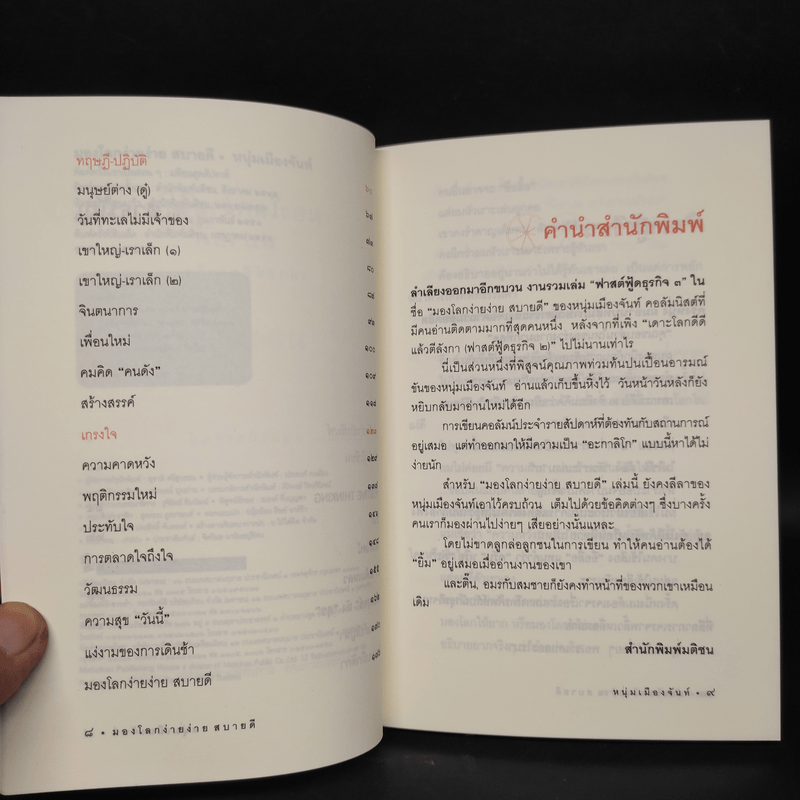 ทฤษฎี-ปฏิบัติ
มนุษย์ต่าง (ตู๋)
วันที่ทะเลไม่มีเจ้าของ
เขาใหญ่-เราเล็ก (๑)
เขาใหญ่-เราเล็ก (๒) ๘๐
จินตนาการ
เพื่อนใหม่
คมคิด "คนดัง" ๑๐๐
สร้างสรรค์
เกรงใจ
ความคาดหวัง
พฤติกรรมใหม่
ประทับใจ
การตลาดใจถึงใจ
วัฒนธรรม
ความสุข "วันนี้"
แง่งามของการเดินช้า
มองโลกง่ายง่าย สบายดี
๘ • มองโลกง่ายง่าย สบายดี
คำนำสำนักพิมพ์
ลำเลียงออกมาอีกขบวน งานรวมเล่ม "ฟาสต์ฟู้ดธุรกิจ ๓" ใน
ชื่อ "มองโลกง่ายง่าย สบายดี" ของหนุ่มเมืองจันท์ คอลัมนิสต์ที่
มีคนอ่านติดตามมากที่สุดคนหนึ่ง หลังจากที่เพิ่ง "เดาะโลกดีดี
แล้วตีลังกา (ฟาสต์ฟู้ดธุรกิจ ๒)" ไปไม่นานเท่าไร
นี่เป็นส่วนหนึ่งที่พิสูจน์คุณภาพท่วมท้นปนเปื้อนอารมณ์
ขันของหนุ่มเมืองจันท์ อ่านแล้วเก็บขึ้นหิ้งไว้ วันหน้าวันหลังก็ยัง
หยิบกลับมาอ่านใหม่ได้อีก
การเขียนคอลัมน์ประจำรายสัปดาห์ที่ต้องทันกับสถานการณ์
อยู่เสมอ แต่ทำออกมาให้มีความเป็น "อะกาลิโก" แบบนี้หาได้ไม่
ง่ายนัก
สำหรับ "มองโลกง่ายง่าย สบายดี" เล่มนี้ ยังคงลีลาของ
หนุ่มเมืองจันท์เอาไว้ครบถ้วน เต็มไปด้วยข้อคิดต่างๆ ซึ่งบางครั้ง
คนเราก็มองผ่านไปง่ายๆ เสียอย่างนั้นแหละ
โดยไม่ขาดลูกล่อลูกชนในการเขียน ทำให้คนอ่านต้องได้
"ยิ้ม" อยู่เสมอเมื่ออ่านงานของเขา
และตี๋น, อมรกับสมชายก็ยังคงทำหน้าที่ของพวกเขาเหมือน
เดิม
สำนักพิมพ์มติชน
หนุ่มเมืองจันท์ • ๙